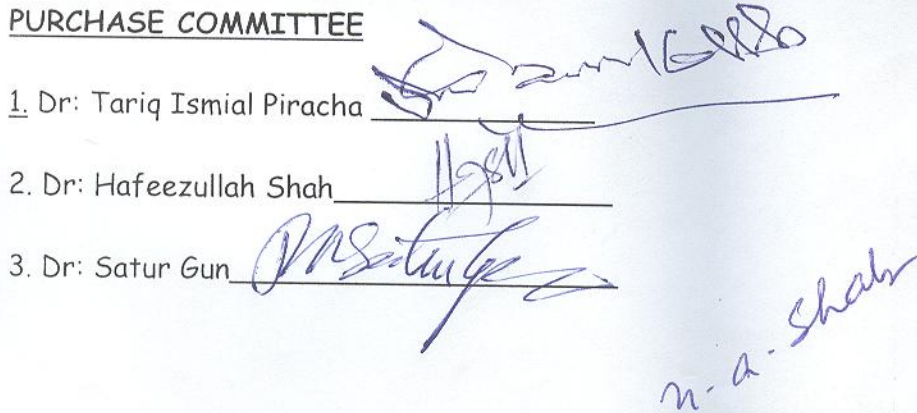 PURCHASE COMMITTEE
1. Dr: Tariq Ismial Piracha
2. Dr: Hafeezullah Shah
3. Dr: Satur Gun
n.a. Shah